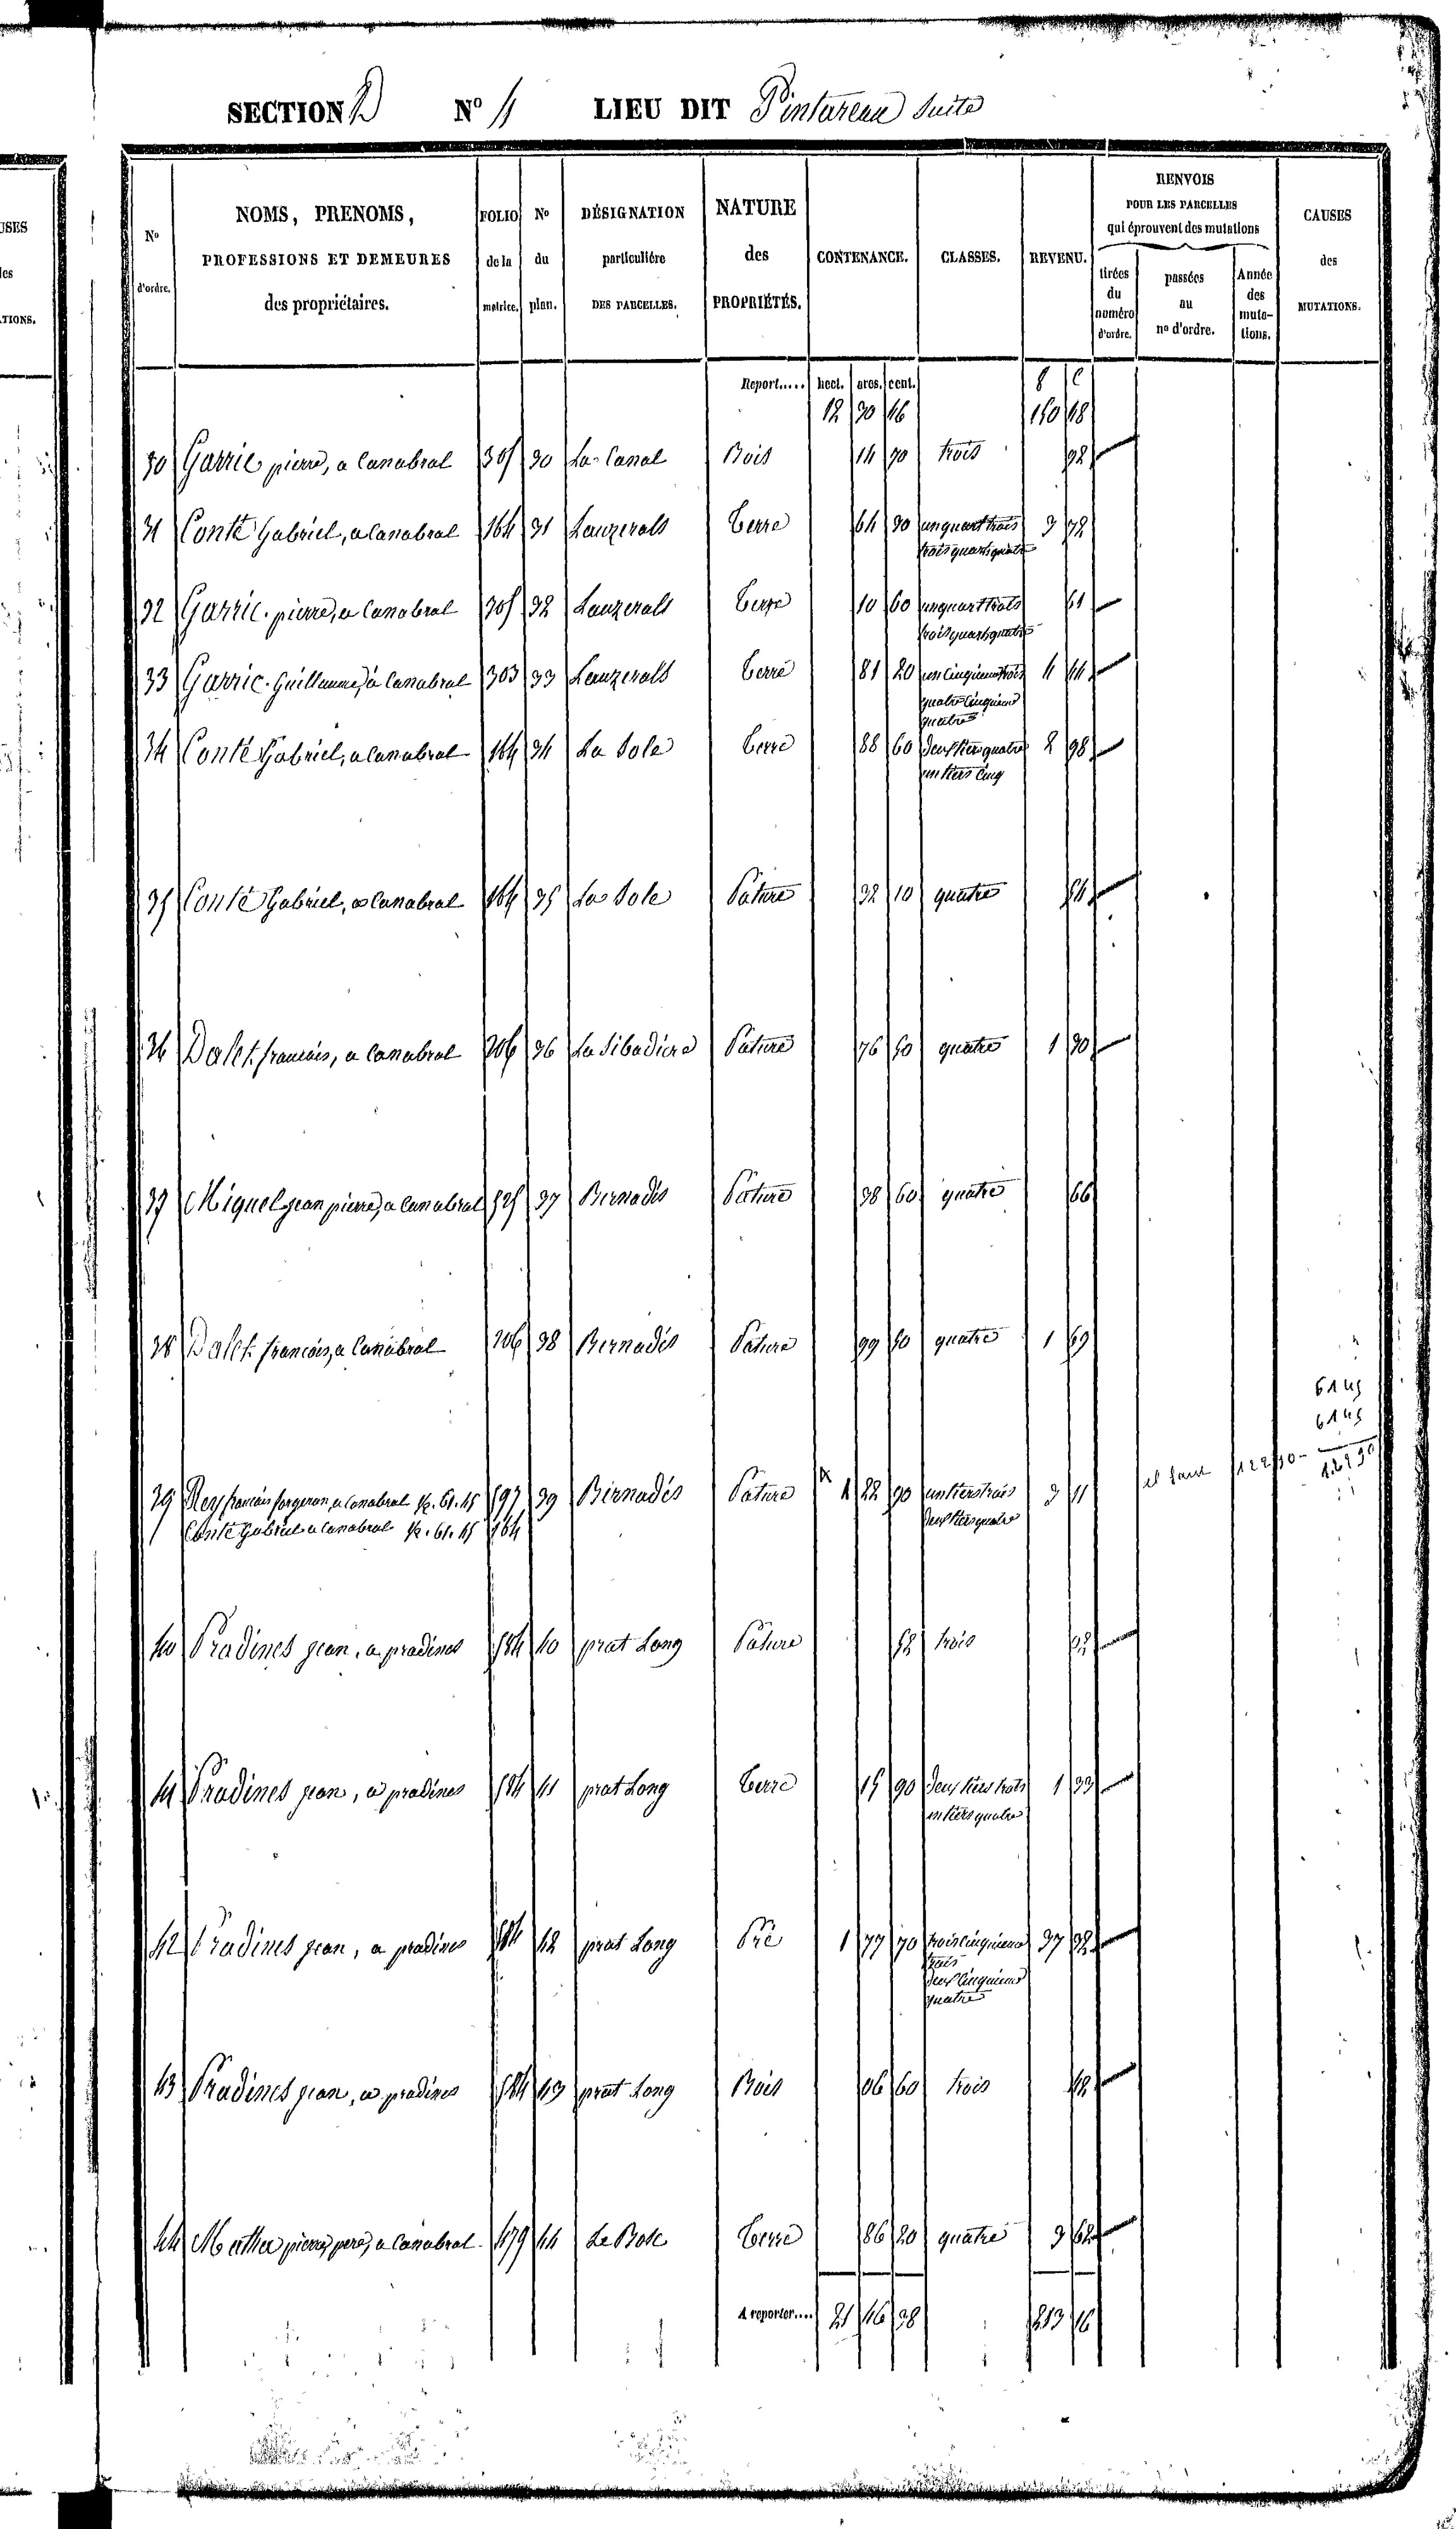 SECTION D N° 4 LIEU DIT Pintareau Suite
N° d'ordre.
NOMS, PRENOMS,
PROFESSIONS ET DEMEURES
des propriétaires.
FOLIO de la matrice.
N° du plan.
DÉSIGNATION particulière DES PARCELLES.
NATURE des PROPRIÉTÉS.
CONTENANCE.
CLASSES.
REVENU.
RENVOIS
POUR LES PARCELLES
qui éprouvent des mutations
tirées du numéro d'ordre.
passées au n° d'ordre.
Année des mutations.
CAUSES des MUTATIONS.
Report..... hect. ares. cent. f c
12 30 46 150 48
30 Garric pierre, a Canabral 305 30 La Canal Bois 14 70 trois 92
31 Conté Gabriel, a Canabral 164 31 Lauzerals Terre 64 30 un quart trois 3 72
trois quarts quatre
32 Garric pierre, a Canabral 305 32 Lauzerals Terre 10 60 un quart trois 61
trois quarts quatre
33 Garric Guillaume, à Canabral 303 33 Lauzerals Terre 81 20 un cinquieme trois 4 44
quatre cinquieme
quatre
34 Conté Gabriel, a Canabral 164 34 La Sole Terre 88 60 deux tiers quatre 2 98
un tiers cinq
35 Conté Gabriel, a Canabral 164 35 La Sole Pature 32 10 quatre 54
36 Dalet francois, a Canabral 206 36 La Sibadiere Pature 76 50 quatre 1 30
37 Miquel jean pierre, a Canabral 525 37 Bernadés Pature 38 60 quatre 66
38 Dalet francois, a Canabral 206 38 Bernadés Pature 99 50 quatre 1 69
61 45
61 45
1.22 90
39 Rey francois forgeron, a Canabral ½ . 61 . 45 597 39 Bernadés Pature x 1 22 90 un tiers trois 3 11 il faut 1 22 90 -
Conté Gabriel a Canabral ½ . 61 . 45 164 deux tiers quatre
40 Pradines jean, a pradines 584 40 prat Long Pature 52 trois 02
41 Pradines jean, a pradines 584 41 prat Long Terre 15 90 deux tiers trois 1 33
un tiers quatre
42 Pradines jean, a pradines 584 42 prat Long Pré 1 77 70 trois cinquieme 37 32
trois
deux cinquieme
quatre
43 Pradines jean, a pradines 584 43 prat Long Bois 06 60 trois 42
44 pierre, pere, a Canabral 479 44 Le Bosc Terre 86 20 quatre 3 62
A reporter.... 21 46 38 213 16